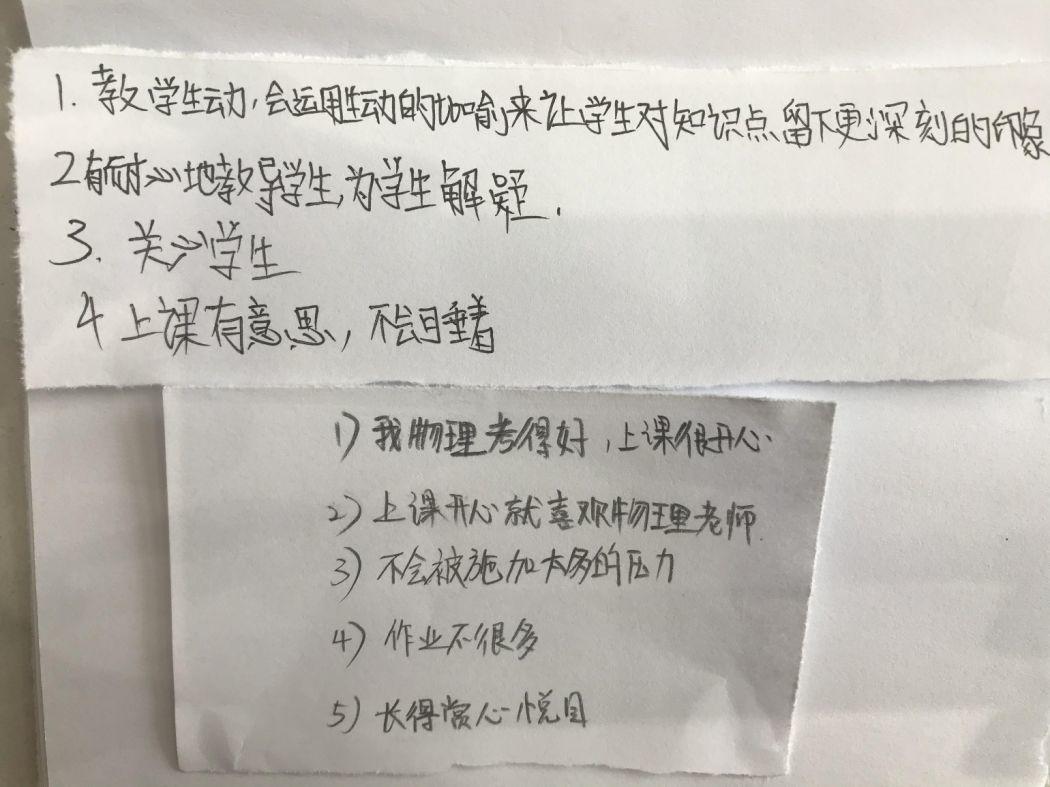 1. 教学生动，会运用生动的比喻来让学生对知识点留下更深刻的印象
2有耐心地教导学生，为学生解疑.
3. 关心学生
4 上课有意思，不会睡着
1) 我物理考得好，上课很开心.
2) 上课开心就喜欢物理老师.
3) 不会被施加太多的压力
4) 作业不很多
5) 长得赏心悦目